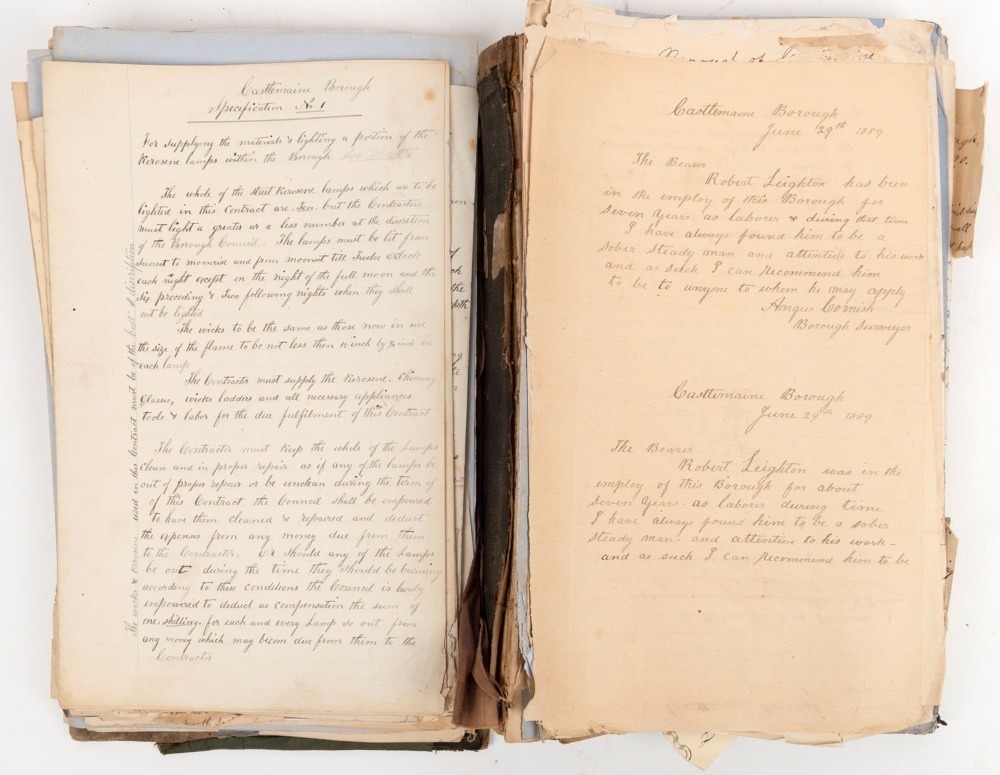 Castlemaine Borough
Specification No 1
For supplying the materials & lighting a portion of the
Kerosene lamps within the Borough
The whole of the Street Kerosene lamps which are to be
lighted in this Contract are Ten but the Contractor
must light a greater or a less number at the discretion
of the Borough Council. The lamps must be lit from
sunset to moonrise and from moonset till Twelve OClock
each night except on the night of the full moon and the
six preceding & Two following nights when they shall
not be lighted
The wicks to be the same as those now in use
the size of the flame to be not less then inch by inch in
each lamp
The Contractor must supply the Kerosene. Chimney
Glasses, wicks ladders and all necessary appliances
tools & labor for the due fulfilment of this Contract
The Contractor must keep the whole of the Lamps
clean and in proper repair as if any of the lamps be
out of proper repair or be unclean during the term of
of this Contract the Council shall be empowered
to have them cleaned & repaired and deduct
the expenses from any money due from them
to the Contractor. Or should any of the Lamps
be out during the time they should be burning
according to these conditions the Council is hereby
empowered to deduct as compensation the sum of
one shilling for each and every Lamp so out from
any money which may becom due from them to the
Contractor
The wicks & Kerosene used in this Contract must be of the best discription
Castlemaine Borough
June 29th 1889
The Bearer
Robert Leighton has been
in the employ of this Borough for
seven years as laborer & during that time
I have always found him to be a
sober steady man and attentive to his work
and as such I can recommend him
to be to anyone to whom he may apply
Angus Cornish
Borough Surveyor
Castlemaine Borough
June 29th 1889
The Bearer
Robert Leighton was in the
employ of this Borough for about
seven years. as laborer during time
I have always found him to be a sober
steady man. and attentive to his work-
and as such I can recommend him to be